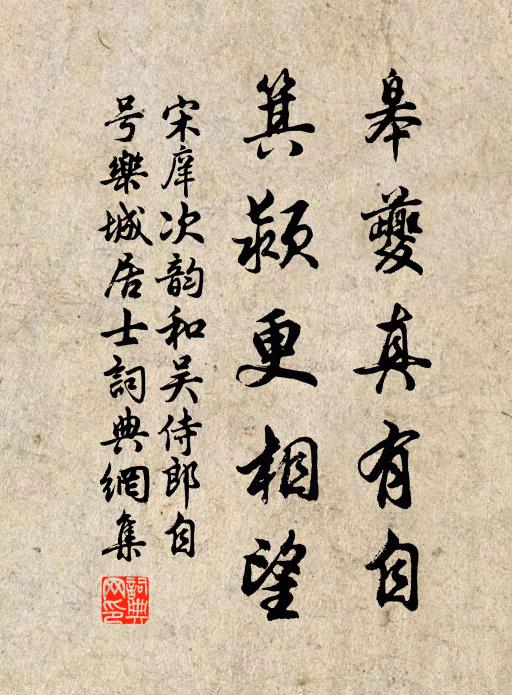 皋夔真有自
箕颍更相望
宋庠次韵和吴侍郎自
号樂城居士詞典網集
詞典网印